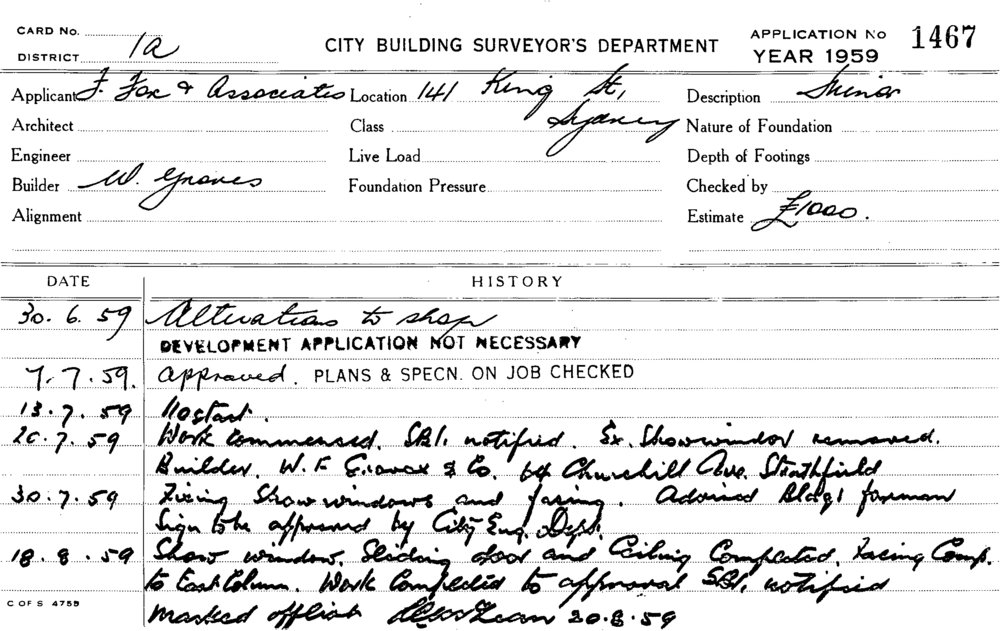 CARD No.
DISTRICT 1a
CITY BUILDING SURVEYOR'S DEPARTMENT
APPLICATION No 1467
YEAR 1959
Applicant F. Fox & Associates Location 141 King St, Description Minor
Architect Class Sydney Nature of Foundation
Engineer Live Load Depth of Footings
Builder W. Graves Foundation Pressure Checked by
Alignment Estimate £1000.
DATE HISTORY
30. 6. 59 Alterations to shop
DEVELOPMENT APPLICATION NOT NECESSARY
7. 7. 59. approved. PLANS & SPECN. ON JOB CHECKED
13. 7. 59 No start.
20. 7. 59 Work commenced. SBI. notified. Ex. Showwindow removed.
Builder. W. F Graves & Co. 64 Churchill Ave. Strathfield
30. 7. 59 Fixing Show windows and facing. Advised Bldg foreman
Sign to be approved by City Eng. Dept.
18. 8. 59 Show window. Sliding door and Ceiling Completed. Facing Comp.
to East Column. Work Completed to approval SBI. notified
marked off list 20.8.59
C OF S 4759